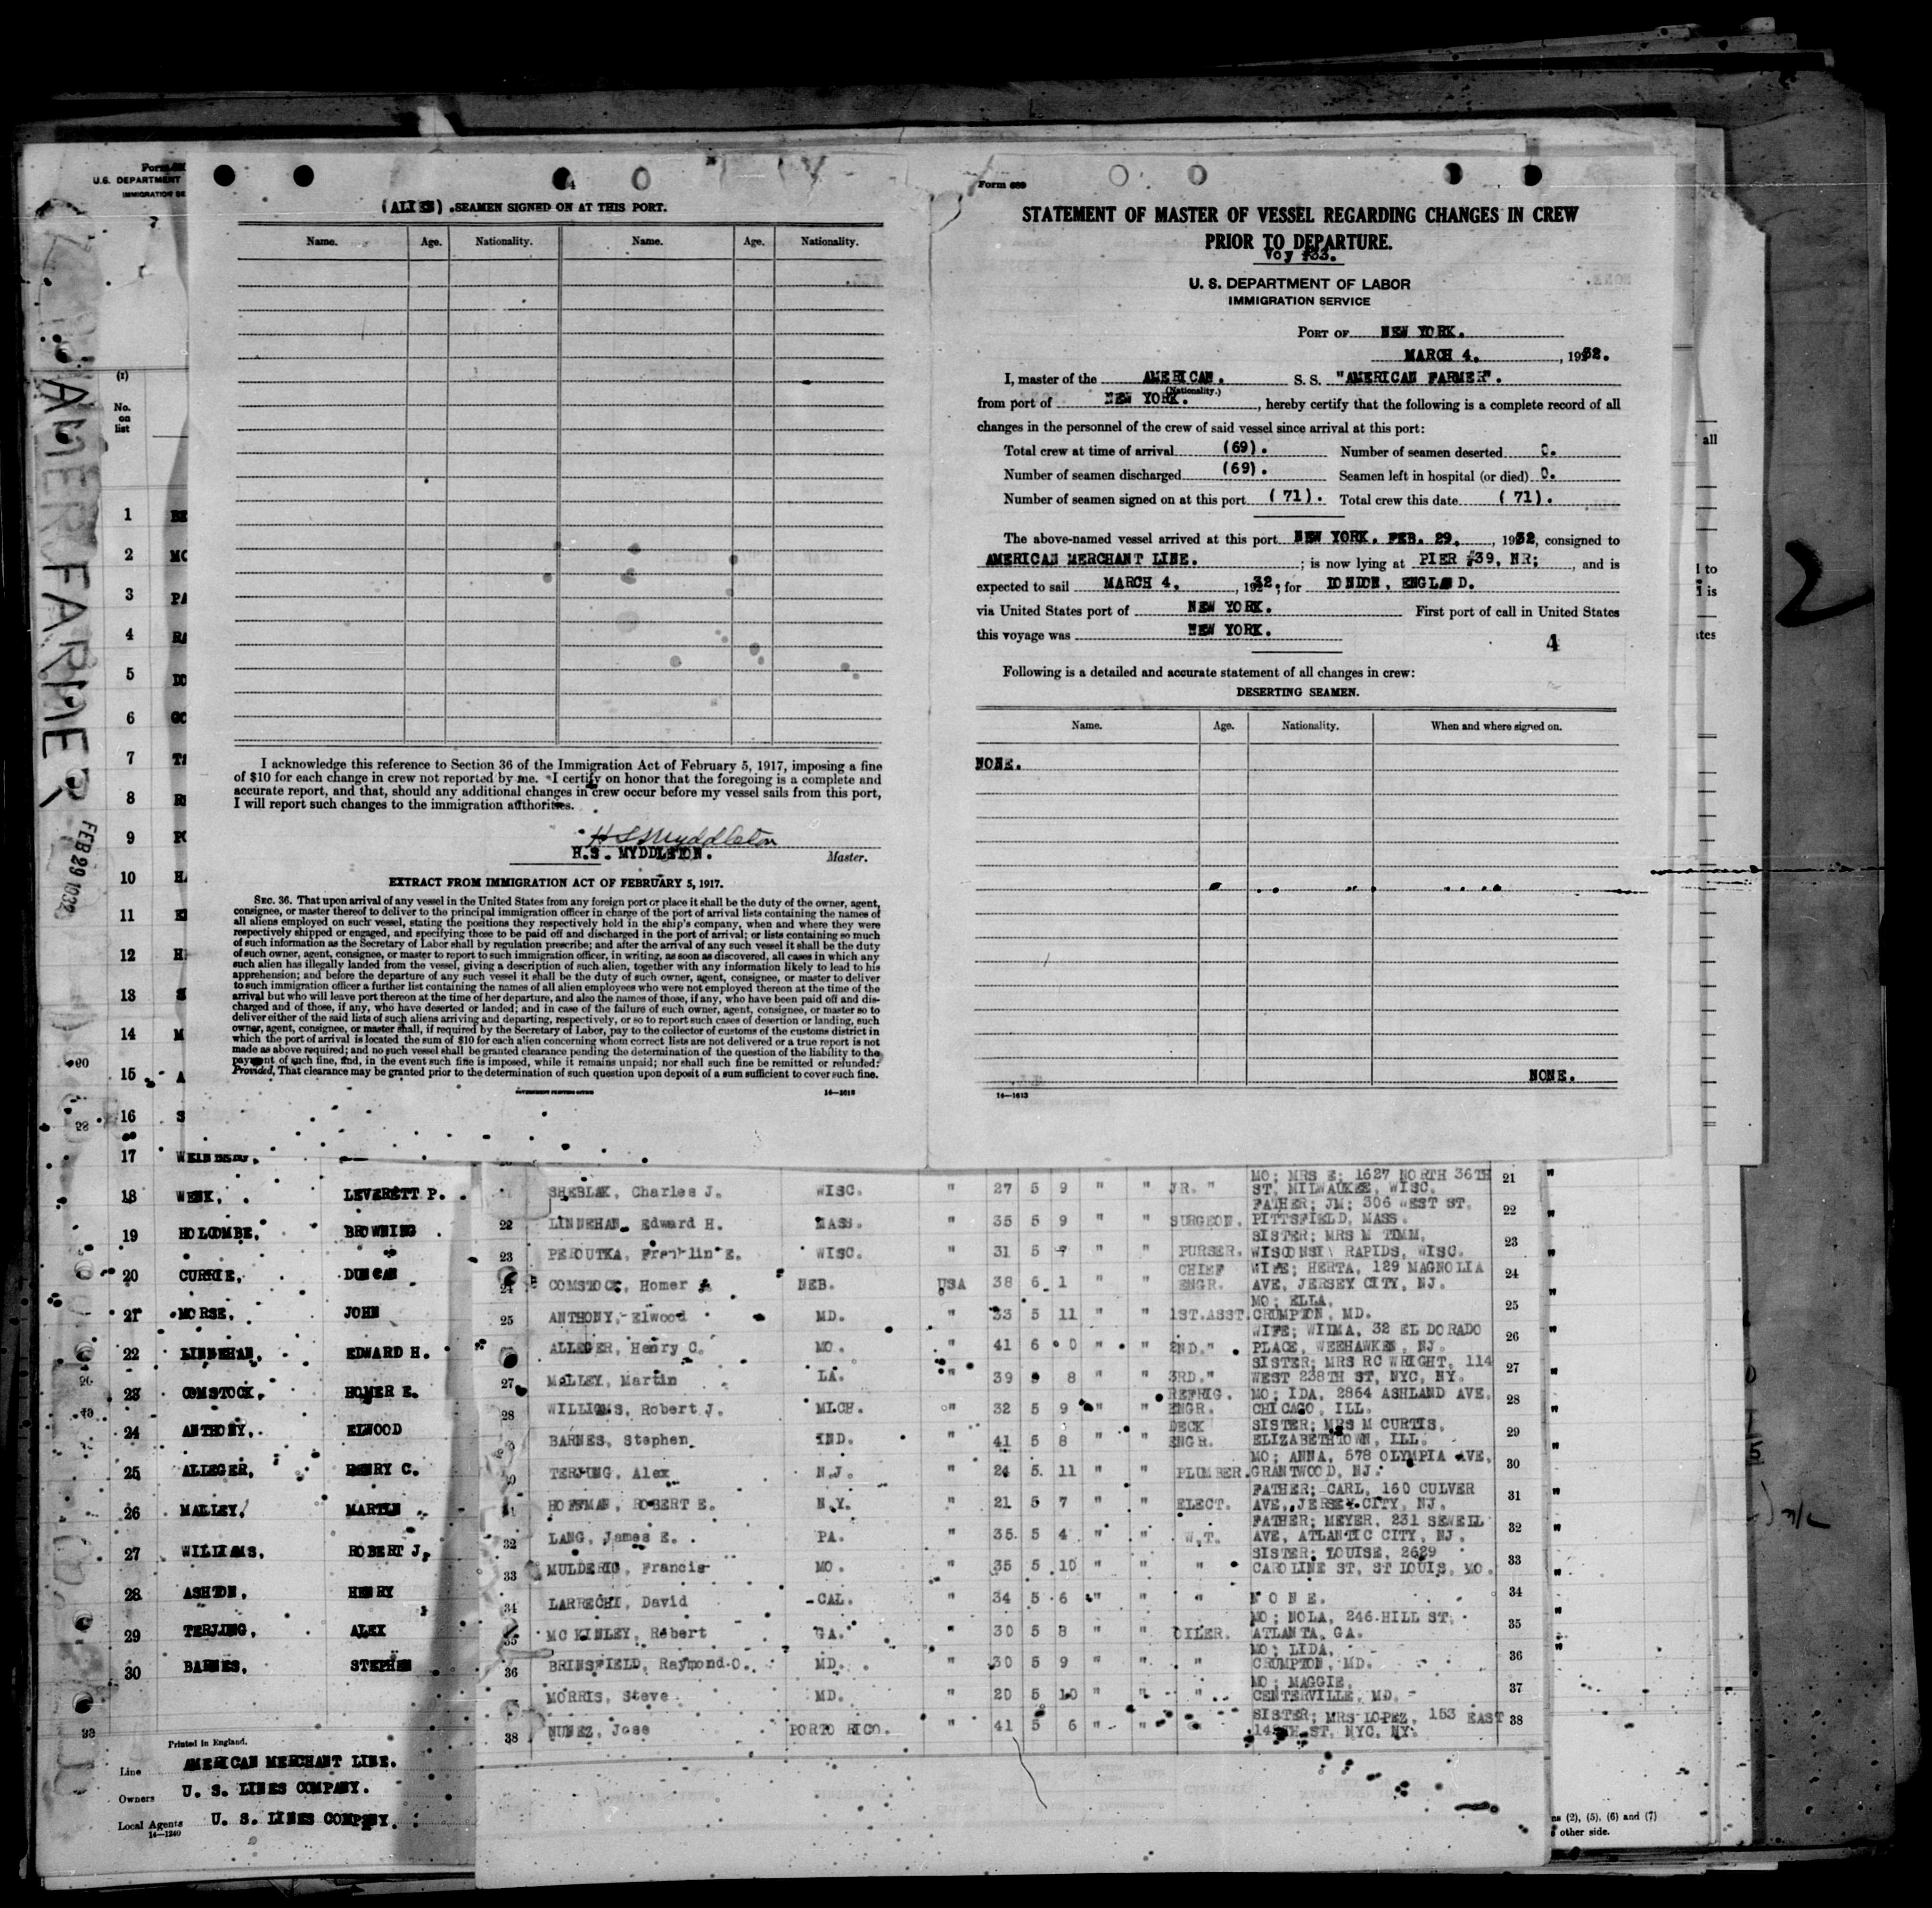 Form
U.S. DEPARTMENT
IMMIGRATION SE
(1)
No.
on
list
AMER FARMER
FEB 29 1932
1
2 MC
3 PA
4 RA
5 DO
6 GO
7
8
9
10
11
12
13
14 M
15 A
16 S
17
18 WENK, LEVERETT P.
19 HOLCOMBE, BROWNING
20 CURRIE, DUNCAN
21 MORSE, JOHN
22 LINNEHAN, EDWARD H.
23 COMSTOCK, HOMER E.
24 ANTHONY, ELWOOD
25 ALLEGER, HENRY C.
26 MALLEY, MARTIN
27 WILLIAMS, ROBERT J.
28 ASHTON, HENRY
29 TERJUNG, ALEX
30 BARNES, STEPHEN
Printed in England.
Line AMERICAN MERCHANT LINE.
Owners U. S. LINES COMPANY.
Local Agents U. S. LINES COMPANY.
14—1240
4
(ALIEN) SEAMEN SIGNED ON AT THIS PORT.
Name. Age. Nationality. Name. Age. Nationality.
I acknowledge this reference to Section 36 of the Immigration Act of February 5, 1917, imposing a fine
of $10 for each change in crew not reported by me. I certify on honor that the foregoing is a complete and
accurate report, and that, should any additional changes in crew occur before my vessel sails from this port,
I will report such changes to the immigration authorities.
H S Myddleton
H.S. MYDDLETON. Master.
EXTRACT FROM IMMIGRATION ACT OF FEBRUARY 5, 1917.
SEC. 36. That upon arrival of any vessel in the United States from any foreign port or place it shall be the duty of the owner, agent,
consignee, or master thereof to deliver to the principal immigration officer in charge of the port of arrival lists containing the names of
all aliens employed on such vessel, stating the positions they respectively hold in the ship's company, when and where they were
respectively shipped or engaged, and specifying those to be paid off and discharged in the port of arrival; or lists containing so much
of such information as the Secretary of Labor shall by regulation prescribe; and after the arrival of any such vessel it shall be the duty
of such owner, agent, consignee, or master to report to such immigration officer, in writing, as soon as discovered, all cases in which any
such alien has illegally landed from the vessel, giving a description of such alien, together with any information likely to lead to his
apprehension; and before the departure of any such vessel it shall be the duty of such owner, agent, consignee, or master to deliver
to such immigration officer a further list containing the names of all alien employees who were not employed thereon at the time of the
arrival but who will leave port thereon at the time of her departure, and also the names of those, if any, who have been paid off and dis-
charged and of those, if any, who have deserted or landed; and in case of the failure of such owner, agent, consignee, or master so to
deliver either of the said lists of such aliens arriving and departing, respectively, or so to report such cases of desertion or landing, such
owner, agent, consignee, or master shall, if required by the Secretary of Labor, pay to the collector of customs of the customs district in
which the port of arrival is located the sum of $10 for each alien concerning whom correct lists are not delivered or a true report is not
made as above required; and no such vessel shall be granted clearance pending the determination of the question of the liability to the
payment of such fine, and, in the event such fine is imposed, while it remains unpaid; nor shall such fine be remitted or refunded:
Provided, That clearance may be granted prior to the determination of such question upon deposit of a sum sufficient to cover such fine.
GOVERNMENT PRINTING OFFICE 14—1613
Form 689
STATEMENT OF MASTER OF VESSEL REGARDING CHANGES IN CREW
PRIOR TO DEPARTURE.
Voy #33.
U. S. DEPARTMENT OF LABOR
IMMIGRATION SERVICE
PORT OF NEW YORK.
MARCH 4, 1932.
I, master of the AMERICAN. S. S. "AMERICAN FARMER".
(Nationality.)
from port of NEW YORK. , hereby certify that the following is a complete record of all
changes in the personnel of the crew of said vessel since arrival at this port:
Total crew at time of arrival (69). Number of seamen deserted 0.
Number of seamen discharged (69). Seamen left in hospital (or died) 0.
Number of seamen signed on at this port (71). Total crew this date (71).
The above-named vessel arrived at this port NEW YORK. FEB. 29. , 1932, consigned to
AMERICAN MERCHANT LINE. ; is now lying at PIER #39, NR; , and is
expected to sail MARCH 4, , 1932, for LONDON, ENGLAND.
via United States port of NEW YORK. First port of call in United States
this voyage was NEW YORK.
4
Following is a detailed and accurate statement of all changes in crew:
DESERTING SEAMEN.
Name. Age. Nationality. When and where signed on.
NONE.
NONE.
14—1613
all
to
is
ates
2
MO; MRS E; 1627 NORTH 36TH
SHEBLAK, Charles J. WISC. " 27 5 9 " " JR. " ST, MILWAUKEE, WISC. 21
FATHER; JM; 306 WEST ST.
22 LINNEHAN, Edward H. MASS. " 35 5 9 " " SURGEON. PITTSFIELD, MASS. 22
SISTER; MRS M TIMM,
23 PEROUTKA, Franklin E. WISC. " 31 5 7 " " PURSER. WISCONSIN RAPIDS, WISC. 23
CHIEF WIFE; HERTA, 129 MAGNOLIA
24 COMSTOCK, Homer NEB. USA 38 6 1 " " ENGR. AVE, JERSEY CITY, NJ. 24
MO; ELLA,
25 ANTHONY, Elwood MD. " 33 5 11 " " 1ST.ASST. CRUMPTON, MD. 25
WIFE; WILMA, 32 EL DORADO
ALLEGER, Henry C. MO. " 41 6 0 " " 2ND." PLACE, WEEHAWKEN, NJ. 26
SISTER; MRS RC WRIGHT, 114
27 MALLEY, Martin LA. " 39 8 " " 3RD." WEST 238TH ST, NYC, NY. 27
REFRIG. MO; IDA, 2864 ASHLAND AVE,
28 WILLIAMS, Robert J. MICH. " 32 5 9 " " ENGR. CHICAGO, ILL. 28
DECK SISTER; MRS M CURTIS,
BARNES, Stephen IND. " 41 5 8 " " ENGR. ELIZABETHTOWN, ILL. 29
MO; ANNA, 578 OLYMPIA AVE,
TERJUNG, Alex N.J. " 24 5 11 " " PLUMBER. GRANTWOOD, NJ. 30
FATHER; CARL, 160 CULVER
HOFFMAN, ROBERT E. N.Y. " 21 5 7 " " ELECT. AVE, JERSEY CITY, NJ. 31
FATHER; MEYER, 231 SEWELL
32 LANG, James E. PA. " 35 5 4 " " W.T. AVE, ATLANTIC CITY, NJ. 32
SISTER; LOUISE, 2629
33 MULDERIG, Francis MO. " 35 5 10 " " " CAROLINE ST, ST LOUIS, MO. 33
34 LARRECHI, David CAL. " 34 5 6 " " " N O N E. 34
MO; NOLA, 246 HILL ST.
35 MC KINLEY, Robert GA. " 30 5 8 " " OILER. ATLANTA, GA. 35
MO; LIDA,
36 BRINSFIELD, Raymond O. MD. " 30 5 9 " " " CRUMPTON, MD. 36
MO; MAGGIE,
MORRIS, Steve MD. " 20 5 10 " " " CENTERVILLE, MD. 37
SISTER; MRS LOPEZ, 153 EAST
38 NUNEZ, Jose PORTO RICO. " 41 5 6 " " " 148TH ST, NYC, NY. 38
(2), (5), (6) and (7)
other side.